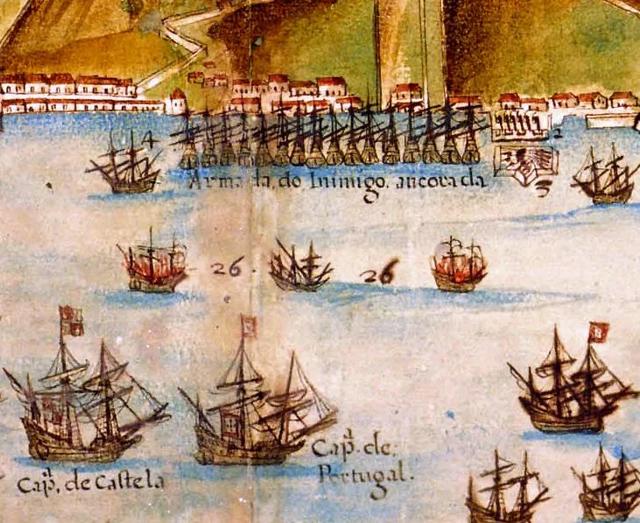 4
2
Armada do Inimigo. ancorada
3
26. 26
Capª. de Castela
Capª. de
Portugal.